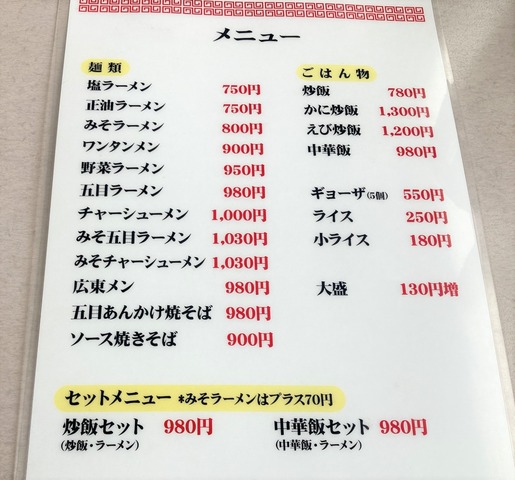 メニュー
麺類
塩ラーメン 750円
正油ラーメン 750円
みそラーメン 800円
ワンタンメン 900円
野菜ラーメン 950円
五目ラーメン 980円
チャーシューメン 1,000円
みそ五目ラーメン 1,030円
みそチャーシューメン 1,030円
広東メン 980円
五目あんかけ焼そば 980円
ソース焼きそば 900円
ごはん物
炒飯 780円
かに炒飯 1,300円
えび炒飯 1,200円
中華飯 980円
ギョーザ(5個) 550円
ライス 250円
小ライス 180円
大盛 130円増
セットメニュー *みそラーメンはプラス70円
炒飯セット 980円
(炒飯・ラーメン)
中華飯セット 980円
(中華飯・ラーメン)